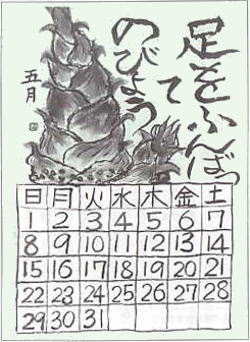 足をふんばっ
て
のびよう
五月
日 月 火 水 木 金 土
1 2 3 4 5 6 7
8 9 10 11 12 13 14
15 16 17 18 19 20 21
22 23 24 25 26 27 28
29 30 31